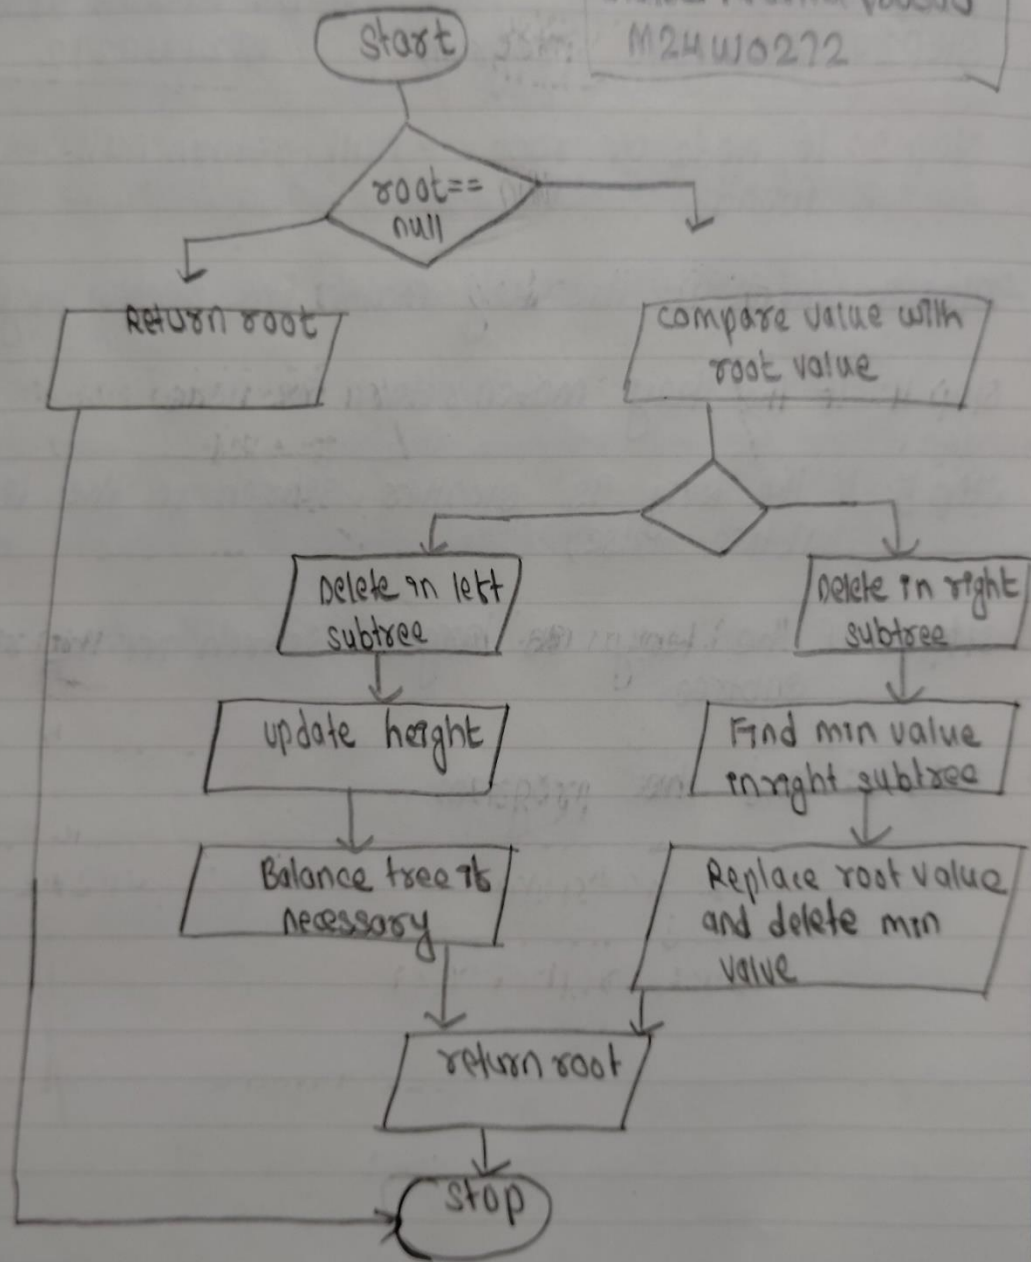 M24W0272
Start
root==
null
Return root
compare value with
root value
Delete in left
subtree
Delete in right
subtree
update height
Find min value
in right subtree
Balance tree if
necessary
Replace root value
and delete min
value
return root
Stop